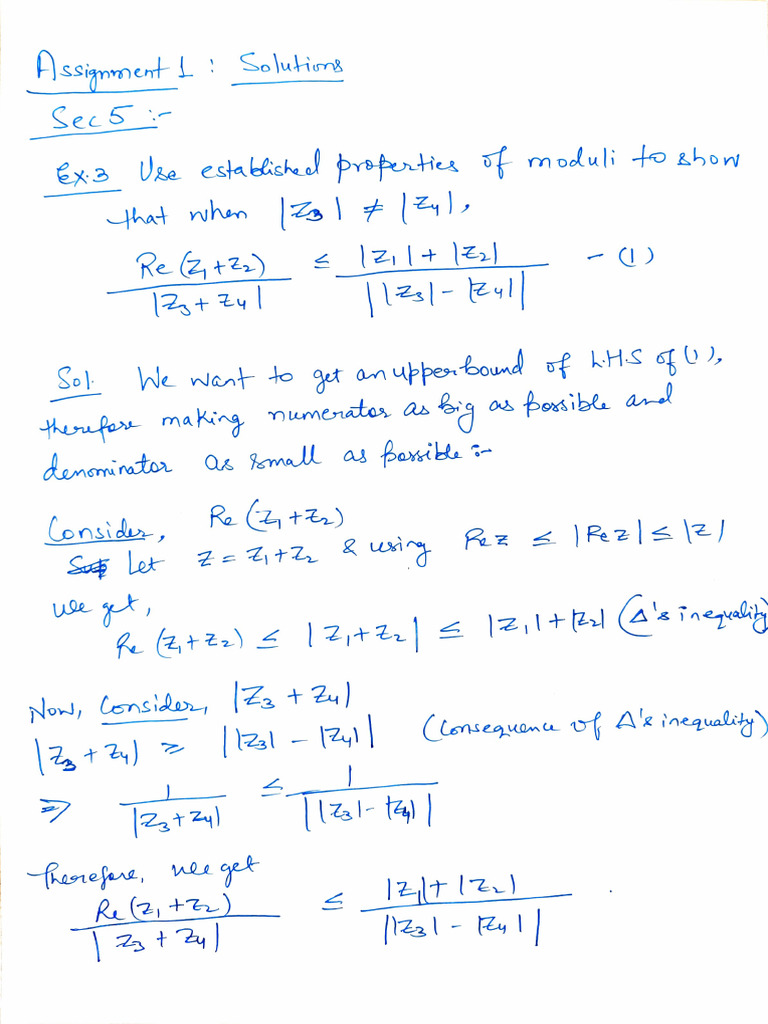 Assignment 1 : Solutions
Sec 5 :-
Ex.3 Use established properties of moduli to show
that when |Z3| ≠ |Z4|,
Re (Z1+Z2) / |Z3 + Z4| ≤ |Z1| + |Z2| / ||Z3| - |Z4|| - (1)
Sol. We want to get an upper bound of L.H.S of (1),
therefore making numerator as big as possible and
denominator as small as possible :-
Consider, Re (Z1+Z2)
Let Z = Z1+Z2 & using Re z ≤ |Re z| ≤ |Z|
we get,
Re (Z1+Z2) ≤ |Z1+Z2| ≤ |Z1|+|Z2| (Δ's inequality)
Now, Consider, |Z3 + Z4|
|Z3 + Z4| ≥ ||Z3| - |Z4|| (Consequence of Δ's inequality)
⇒ 1 / |Z3+Z4| ≤ 1 / ||Z3|-|Z4||
Therefore, we get
Re (Z1+Z2) / |Z3 + Z4| ≤ |Z1|+|Z2| / ||Z3| - |Z4||